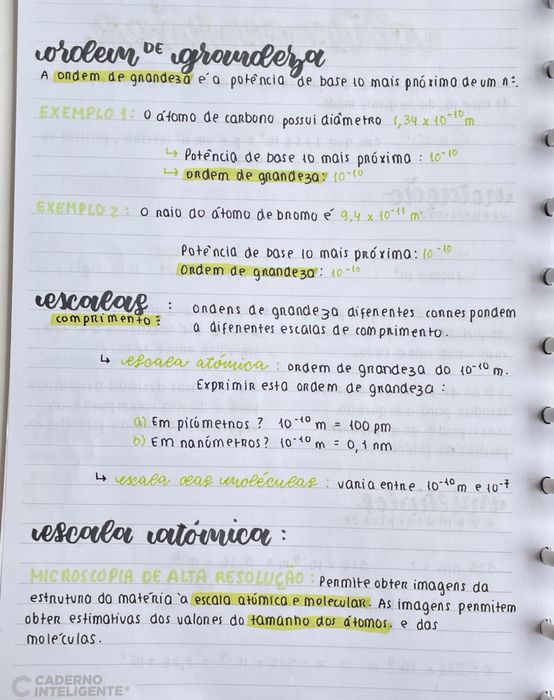 ordem DE grandeza
A ordem de grandeza é a potência de base 10 mais próxima de um nº.
EXEMPLO 1: O átomo de carbono possui diâmetro 1,34 x 10⁻¹⁰ m
↳ Potência de base 10 mais próxima : 10⁻¹⁰
↳ ordem de grandeza: 10⁻¹⁰
EXEMPLO 2 : O raio do átomo de bromo é 9,4 x 10⁻¹¹ m
Potência de base 10 mais próxima: 10⁻¹⁰
ordem de grandeza : 10⁻¹⁰
escalas : ordens de grandeza diferentes correspondem
comprimento: a diferentes escalas de comprimento.
↳ escala atómica : ordem de grandeza do 10⁻¹⁰ m.
Exprimir esta ordem de grandeza :
a) Em picómetros ? 10⁻¹⁰ m = 100 pm
b) Em nanómetros? 10⁻¹⁰ m = 0,1 nm
↳ escala das moléculas : varia entre 10⁻¹⁰ m e 10⁻⁷
escala atómica :
MICROSCOPIA DE ALTA RESOLUÇÃO : Permite obter imagens da
estrutura da matéria à escala atómica e molecular. As imagens permitem
obter estimativas dos valores do tamanho dos átomos. e das
moléculas.
CADERNO
INTELIGENTE®